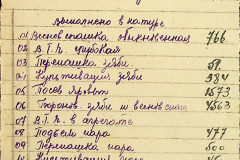 выполнено в натуре
01 Весновспашка обыкновенная 766
02 В.Т.К. глубокая
03 Перепашка зяби 58
04 Культивация зяби 384
05 Посев яровых 1573
06 Боронов. зяби и весновспаш 4563
07 В.Т.К. в агрегате
08 Подъем пара 477
09 Перепашка пара 500
10 Культивация пара